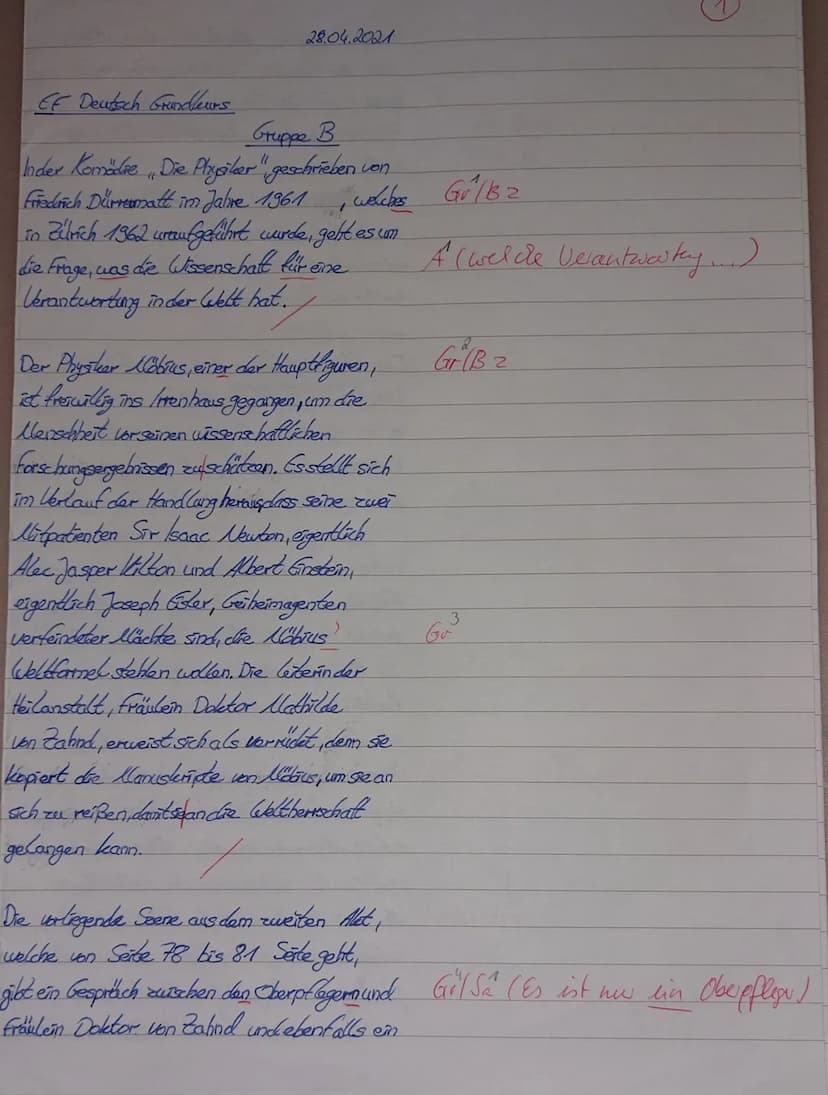 1
28.04.2021
EF Deutsch Grundkurs
Gruppe B
In der Komödie „Die Physiker“, geschrieben von
Friedrich Dürrenmatt im Jahre 1961 , welches Gr¹/Bz
in Zürich 1962 uraufgeführt wurde, geht es um
die Frage, was die Wissenschaft für eine A¹ (welche Verantwortung ...)
Verantwortung in der Welt hat.
Der Physiker Möbius, einer der Hauptfiguren, Gr²/Bz
ist freiwillig ins Irrenhaus gegangen, um die
Menschheit vor seinen wissenschaftlichen
Forschungsergebnissen zu schützen. Es stellt sich
im Verlauf der Handlung heraus, dass seine zwei
Mitpatienten Sir Isaac Newton, eigentlich
Alec Jasper Kilton und Albert Einstein,
eigentlich Joseph Eisler, Geiheimagenten
verfeindeter Mächte sind, die Möbius' Gr³
Weltformel stehlen wollen. Die Leiterin der
Heilanstalt, Fräulein Doktor Mathilde
von Zahnd, erweist sich als verrückt, denn sie
kopiert die Manuskripte von Möbius, um sie an
sich zu reißen, damit sie an die Weltherrschaft
gelangen kann.
Die vorliegende Szene aus dem zweiten Akt,
welche von Seite 78 bis 81 Seite geht,
gibt ein Gespräch zwischen den Oberpflegern und Gr⁴/Sa¹ (Es ist nur ein Oberpfleger)
Fräulein Doktor von Zahnd und ebenfalls ein